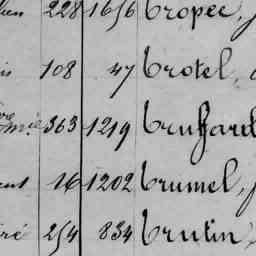 228 1656 Tropée,
108 47 Trotel,
363 1219 Truffard
16 1202 Trumel,
254 834 Trutin,